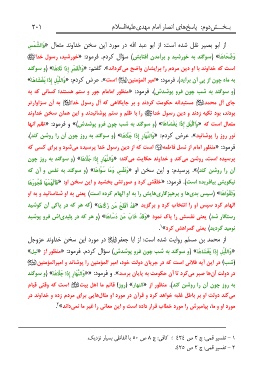 بخش دوم: پاسخ‌های انصار امام مهدی علیه‌السلام ۲۰۱
از ابو بصیر نقل شده است: از ابو عبد الله در مورد این سخن خداوند متعال «وَالشَّمْسِ
وَضُحَاهَا» (سوگند به خورشید و برآمدن آفتابش) سؤال کردم. فرمود: «خورشید، رسول خدا
است که خداوند با او دین مردم را برایشان واضح می‌گرداند». گفتم: «وَالْقَمَرِ إِذَا تَلَاهَا» (و سوگند
به ماه چون از پی آن برآید). فرمود: «امیر المؤمنین است». عرض کردم: «وَاللَّيْلِ إِذَا يَغْشَاهَا»
(و سوگند به شب چون فرو پوشدش). فرمود: «منظور امامام جور و ستم هستند؛ کسانی که به
جای آل محمد مستبدانه حکومت کردند و بر جایگاهی که آل رسول خدا به آن سزاوارتر
بودند، تکیه زدند و دین رسول خدا را با ظلم و ستم پوشانیدند، و این همان سخن خداوند
متعال است که «وَاللَّيْلِ إِذَا يَغْشَاهَا» (و سوگند به شب چون فرو پوشدش)» و فرمود: «ظلم آنها
نور روز را پوشانید». عرض کردم: «وَالنَّهَارِ إِذَا جَلَّاهَا» (و سوگند به روز چون آن را روشن کند).
فرمود: «منظور امام از نسل فاطمه است که از دین رسول خدا پرسیده می‌شود و برای کسی که
پرسیده است، روشن می‌کند و خداوند حکایت می‌کند: «وَالنَّهَارِ إِذَا جَلَّاهَا» (و سوگند به روز چون
آن را روشن کند)». پرسیدم: و این سخن او «وَنَفْسٍ وَمَا سَوَّاهَا» (و سوگند به نفس و آن که
نیکویش بیافریده است). فرمود: «خلقش کرد و صورتش بخشید و این سخن او: «فَأَلْهَمَهَا فُجُورَهَا
وَتَقْوَاهَا» (سپس بدی‌ها و پرهیزگاری‌هایش را به او الهام کرده است) یعنی به او شناسانید و به او
الهام کرد سپس او را انتخاب کرد و برگزید «قَدْ أَفْلَحَ مَنْ زَكَّاهَا» (که هر که در پاکی آن کوشید
رستگار شد) یعنی نفسش را پاک نمود «وَقَدْ خَابَ مَنْ دَسَّاهَا» (و هر که در پلیدی‌اش فرو پوشید
نومید گردید) یعنی گمراهش کرد».
از محمد بن مسلم روایت شده است: از ابا جعفر در مورد این سخن خداوند عزوجل
«وَاللَّيْلِ إِذَا يَغْشَاهَا» (و سوگند به شب چون فرو پوشدش) سؤال کردم. فرمود: «منظور از «لیل»
(شب) در این آیه فلانی است که در جریان دولت خود، امیر المؤمنین را پوشاند و امیرالمؤمنین
در دولت آن‌ها صبر می‌کرد تا آن حکومت به پایان برسد». و فرمود: «وَالنَّهَارِ إِذَا جَلَّاهَا» (و سوگند
به روز چون آن را روشن کند). منظور از «النهار» (روز) قائم ما اهل بیت است که وقتی قیام
می‌کند دولت او بر باطل غلبه خواهد کرد و قرآن در مورد او مثال‌هایی برای مردم زده و خداوند در
مورد او و ما، پیامبرش را مورد خطاب قرار داده است و این معانی را غیر ما نمی‌داند».
۱ - تفسیر قمی: ج ۲ ص ۴۲۴ ؛ کافی: ج ۸ ص ۵۰ با الفاظی بسیار نزدیک.
۲ - تفسیر قمی: ج ۲ ص ۴۲۵.